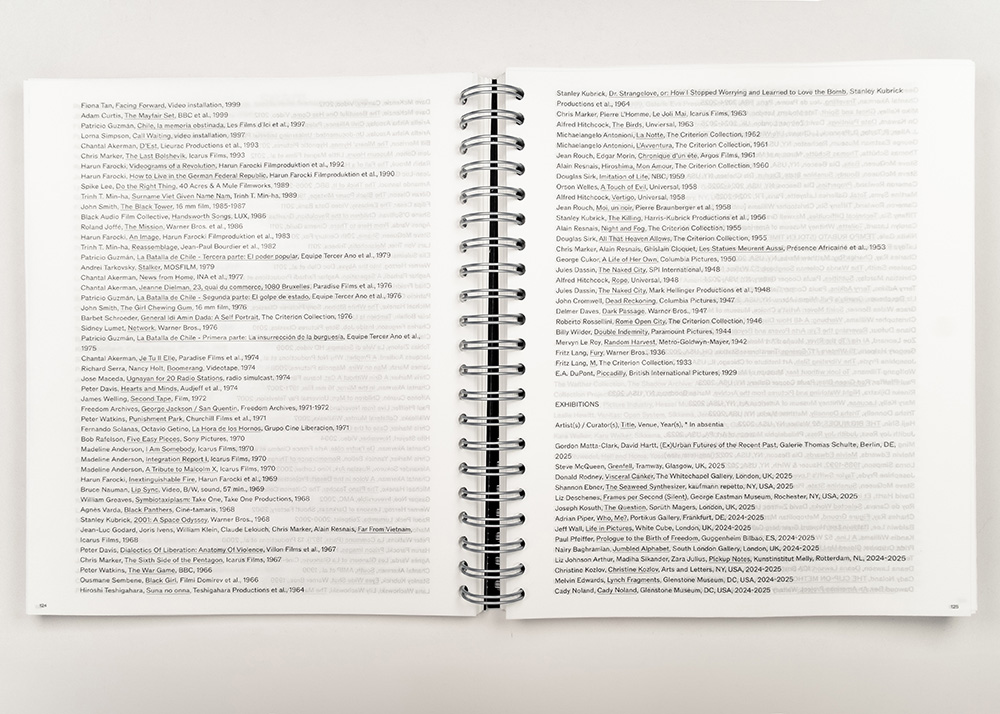 Fiona Tan, Facing Forward, Video installation, 1999
Adam Curtis, The Mayfair Set, BBC et al., 1999
Patricio Guzmán, Chile, la memoria obstinada, Les Films d'Ici et al., 1997
Lorna Simpson, Call Waiting, video installation, 1997
Chantal Akerman, D'Est, Lieurac Productions et al., 1993
Chris Marker, The Last Bolshevik, Icarus Films, 1993
Harun Farocki, Videograms of a Revolution, Harun Farocki Filmproduktion et al., 1992
Harun Farocki, How to Live in the German Federal Republic, Harun Farocki Filmproduktion et al., 1990
Spike Lee, Do the Right Thing, 40 Acres & A Mule Filmworks, 1989
Trinh T. Min-ha, Surname Viet Given Name Nam, Trinh T. Min-ha, 1989
John Smith, The Black Tower, 16 mm film, 1985-1987
Black Audio Film Collective, Handsworth Songs, LUX, 1986
Roland Joffé, The Mission, Warner Bros. et al., 1986
Harun Farocki, An Image, Harun Farocki Filmproduktion et al., 1983
Trinh T. Min-ha, Reassemblage, Jean-Paul Bourdier et al., 1982
Patricio Guzmán, La Batalla de Chile - Tercera parte: El poder popular, Equipe Tercer Ano et al., 1979
Andrei Tarkovsky, Stalker, MOSFILM, 1979
Chantal Akerman, News from Home, INA et al., 1977
Chantal Akerman, Jeanne Dielman, 23, quai du commerce, 1080 Bruxelles, Paradise Films et al., 1976
Patricio Guzmán, La Batalla de Chile - Segunda parte: El golpe de estado, Equipe Tercer Ano et al., 1976
John Smith, The Girl Chewing Gum, 16 mm film, 1976
Barbet Schroeder, General Idi Amin Dada: A Self Portrait, The Criterion Collection, 1976
Sidney Lumet, Network, Warner Bros., 1976
Patricio Guzmán, La Batalla de Chile - Primera parte: La insurrección de la burguesía, Equipe Tercer Ano et al.,
1975
Chantal Akerman, Je Tu Il Elle, Paradise Films et al., 1974
Richard Serra, Nancy Holt, Boomerang, Videotape, 1974
Jose Maceda, Ugnayan for 20 Radio Stations, radio simulcast, 1974
Peter Davis, Hearts and Minds, Audjeff et al., 1974
James Welling, Second Tape, Film, 1972
Freedom Archives, George Jackson / San Quentin, Freedom Archives, 1971-1972
Peter Watkins, Punishment Park, Churchill Films et al., 1971
Fernando Solanas, Octavio Getino, La Hora de los Hornos, Grupo Cine Liberacion, 1971
Bob Rafelson, Five Easy Pieces, Sony Pictures, 1970
Madeline Anderson, I Am Somebody, Icarus Films, 1970
Madeline Anderson, Integration Report I, Icarus Films, 1970
Madeline Anderson, A Tribute to Malcolm X, Icarus Films, 1970
Harun Farocki, Inextinguishable Fire, Harun Farocki et al., 1969
Bruce Nauman, Lip Sync, Video, B/W, sound, 57 min., 1969
William Greaves, Symbiotaxiplasm: Take One, Take One Productions, 1968
Agnès Varda, Black Panthers, Cine-tamaris, 1968
Stanley Kubrick, 2001: A Space Odyssey, Warner Bros., 1968
Jean-Luc Godard, Joris Ivens, William Klein, Claude Lelouch, Chris Marker, Alain Resnais, Far From Vietnam,
Icarus Films, 1968
Peter Davis, Dialectics Of Liberation: Anatomy Of Violence, Villon Films et al., 1967
Chris Marker, The Sixth Side of the Pentagon, Icarus Films, 1967
Peter Watkins, The War Game, BBC, 1966
Ousmane Sembene, Black Girl, Filmi Domirev et al., 1966
Hiroshi Teshigahara, Suna no onna, Teshigahara Productions et al., 1964
124
Stanley Kubrick, Dr. Strangelove, or: How I Stopped Worrying and Learned to Love the Bomb, Stanley Kubrick
Productions et al., 1964
Chris Marker, Pierre L'Homme, Le Joli Mai, Icarus Films, 1963
Alfred Hitchcock, The Birds, Universal, 1963
Michaelangelo Antonioni, La Notte, The Criterion Collection, 1962
Michaelangelo Antonioni, L'Avventura, The Criterion Collection, 1961
Jean Rouch, Edgar Morin, Chronique d'un été, Argos Films, 1961
Alain Resnais, Hiroshima, Mon Amour, The Criterion Collection, 1960
Douglas Sirk, Imitation of Life, NBC, 1959
Orson Welles, A Touch of Evil, Universal, 1958
Alfred Hitchcock, Vertigo, Universal, 1958
Jean Rouch, Moi, un noir, Pierre Braunberger et al., 1958
Stanley Kubrick, The Killing, Harris-Kubrick Productions et al., 1956
Alain Resnais, Night and Fog, The Criterion Collection, 1955
Douglas Sirk, All That Heaven Allows, The Criterion Collection, 1955
Chris Marker, Alain Resnais, Ghislain Cloquet, Les Statues Meurent Aussi, Présence Africainé et al., 1953
George Cukor, A Life of Her Own, Columbia Pictures, 1950
Jules Dassin, The Naked City, SPI International, 1948
Alfred Hitchcock, Rope, Universal, 1948
Jules Dassin, The Naked City, Mark Hellinger Productions et al., 1948
John Cromwell, Dead Reckoning, Columbia Pictures, 1947
Delmer Daves, Dark Passage, Warner Bros., 1947
Roberto Rossellini, Rome Open City, The Criterion Collection, 1946
Billy Wilder, Double Indemnity, Paramount Pictures, 1944
Mervyn Le Roy, Random Harvest, Metro-Goldwyn-Mayer, 1942
Fritz Lang, Fury, Warner Bros., 1936
Fritz Lang, M, The Criterion Collection, 1933
E.A. DuPont, Piccadilly, British International Pictures, 1929
EXHIBITIONS
Artist(s) / Curator(s), Title, Venue, Year(s), * In absentia
Gordon Matta-Clark, David Hartt, (Ex)Urban Futures of the Recent Past, Galerie Thomas Schulte, Berlin, DE,
2025
Steve McQueen, Grenfell, Tramway, Glasgow, UK, 2025
Donald Rodney, Visceral Canker, The Whitechapel Gallery, London, UK, 2025
Shannon Ebner, The Seaweed Synthesizer, kaufmann repetto, NY, USA, 2025
Liz Deschenes, Frames per Second (Silent), George Eastman Museum, Rochester, NY, USA, 2025
Joseph Kosuth, The Question, Sprüth Magers, London, UK, 2025
Adrian Piper, Who, Me?, Portikus Gallery, Frankfurt, DE, 2024-2025
Jeff Wall, Life in Pictures, White Cube, London, UK, 2024-2025
Paul Pfeiffer, Prologue to the Birth of Freedom, Guggenheim Bilbao, ES, 2024-2025
Nairy Baghramian, Jumbled Alphabet, South London Gallery, London, UK, 2024-2025
Liz Johnson Arthur, Madiha Sikander, Zara Julius, Pickup Notes, Kunstinstituut Melly, Rotterdam, NL, 2024-2025
Christine Kozlov, Christine Kozlov, Arts and Letters, NY, USA, 2024-2025
Melvin Edwards, Lynch Fragments, Glenstone Museum, DC, USA, 2024-2025
Cady Noland, Cady Noland, Glenstone Museum, DC, USA, 2024-2025
125